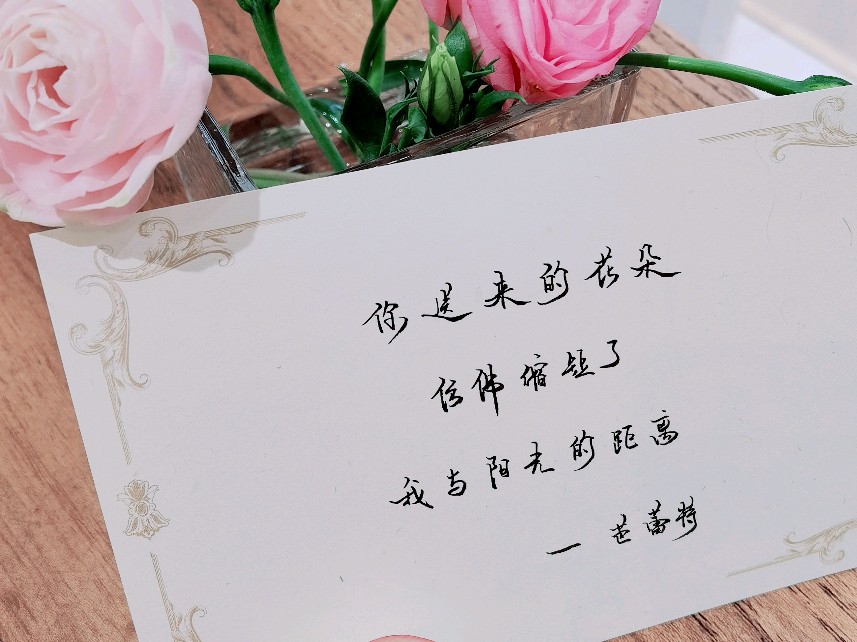 你送来的花朵
仿佛缩短了
我与阳光的距离
—芭蕾特